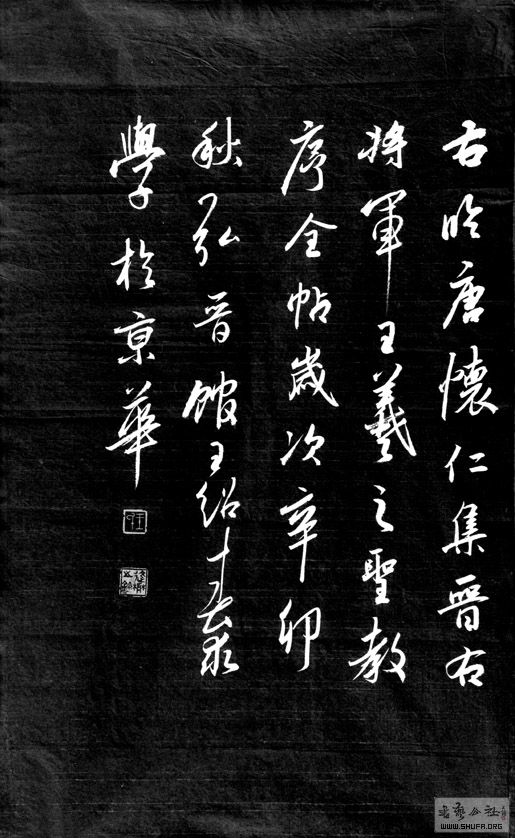 右臨唐懷仁集晉右
將軍王羲之聖教
序全帖歲次辛卯
秋弘晉館王紹
學於京華
WWW.SHUFA.ORG